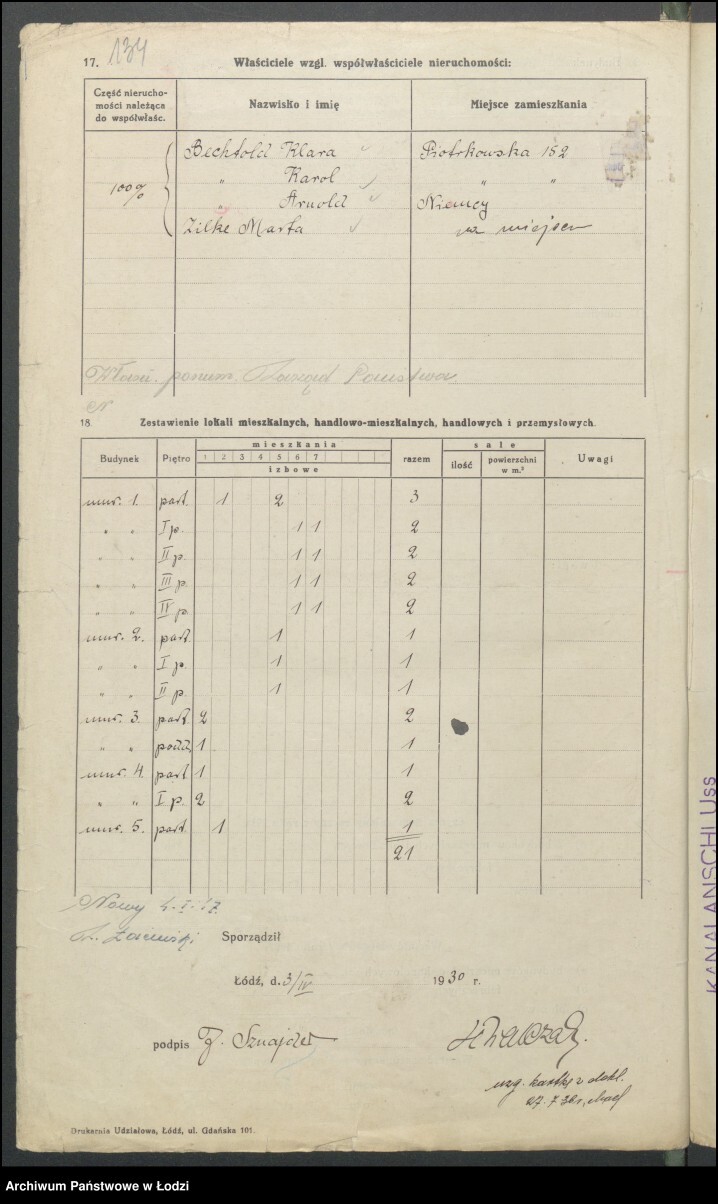 17. 134 Właściciele wzgl. współwłaściciele nieruchomości:
Część nierucho-
mości należąca
do współwłaśc.
Nazwisko i imię
Miejsce zamieszkania
100%
Bechtold Klara Piotrkowska 152
" Karol " "
" Arnold Niemcy
Zilke Marta na miejscu
Zarząd Państwa
18. Zestawienie lokali mieszkalnych, handlowo-mieszkalnych, handlowych i przemysłowych.
Budynek Piętro mieszkania razem sale Uwagi
1 2 3 4 5 6 7
izbowe
ilość powierzchni w m.²
mur. 1. part. 1 2 3
" " I p. 1 1 2
" " II p. 1 1 2
" " III p. 1 1 2
" " IV p. 1 1 2
mur. 2. part. 1 1
" " I p. 1 1
" " II p. 1 1
mur. 3. part. 2 2
" " podd. 1 1
mur. 4. part. 1 1
" " I p. 2 2
mur. 5. part. 1 1
21
Nowy
Sporządził
Łódź, d. 3/IV 1930 r.
podpis F. Sznajder
Drukarnia Udziałowa, Łódź, ul. Gdańska 101.
KANALANSCHLUSS
Archiwum Państwowe w Łodzi